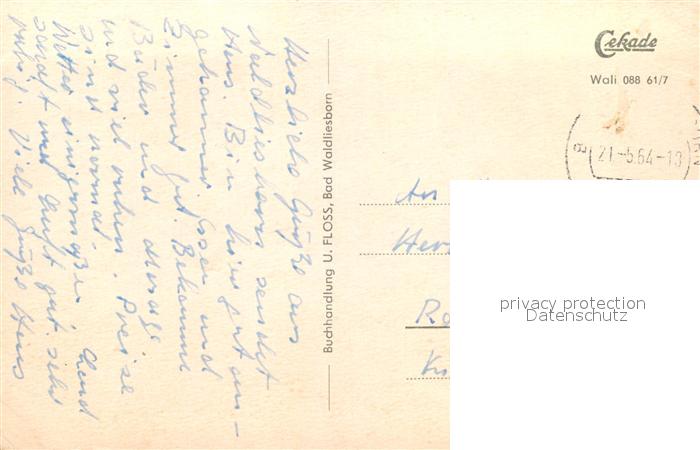 Herzliche Grüße aus
Waldliesborn sendet
Hans. Bin hier gut an-
gekommen. Essen und
Zimmer gut. Bekomme
Bäder und Massage
und viel ruhen. Preise
sind normal.
Wetter einigermaßen. Land
schaft und Luft gut. sehr
ruhig. Viele Grüße Hans
Buchhandlung U. FLOSS, Bad Waldliesborn
Cekade
Wali 088 61/7
21.-5.64-13
An
Her
Ro
Kr
privacy protection
Datenschutz